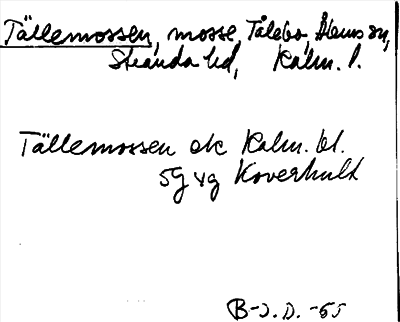 Tällemossen, mosse, Tålebo, Ålems sn,
Stranda hd, Kalm. l.
Tällemossen ek Kalm. bl.
5g vg Koverhult
B-J.D. -65